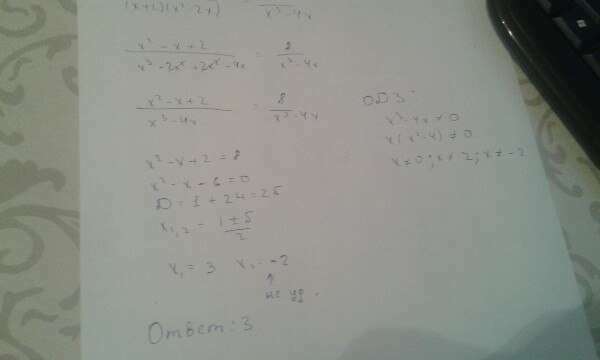 (x+2)(x²-2x) x³-4x
x²-x+2 / x³-2x²+2x²-4x = 8 / x³-4x
x²-x+2 / x³-4x = 8 / x³-4x
ОДЗ:
x³-4x≠0
x(x²-4)≠0
x≠0; x≠2; x≠-2
x²-x+2=8
x²-x-6=0
D=1+24=25
x₁,₂ = 1±5 / 2
x₁=3 x₂=-2
↑
не уд.
Ответ: 3